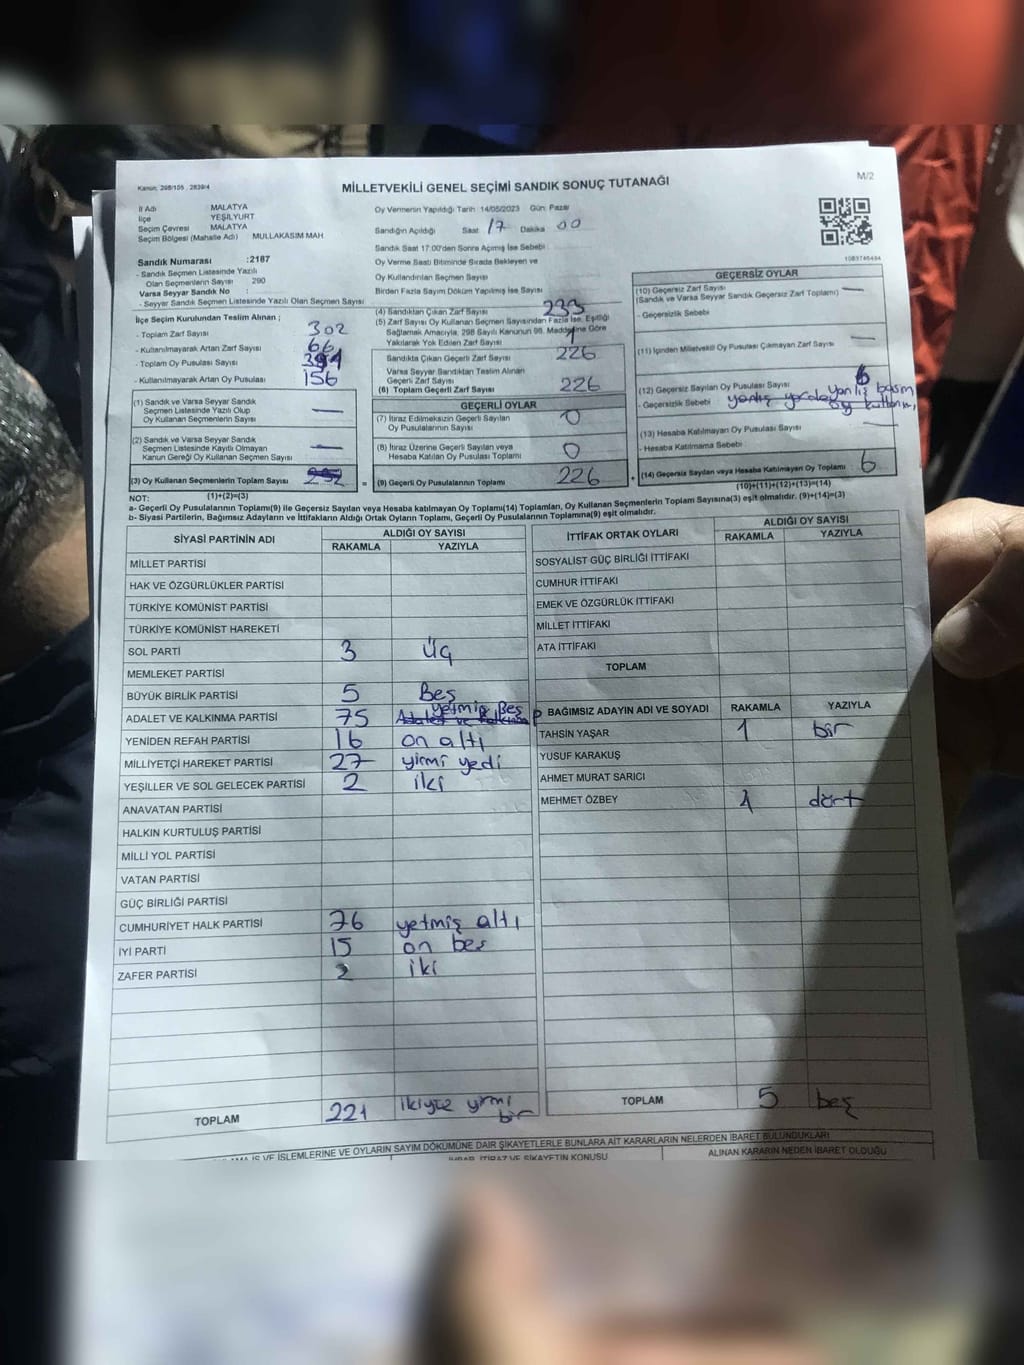 Kanun: 298/105 , 2839/4
MİLLETVEKİLİ GENEL SEÇİMİ SANDIK SONUÇ TUTANAĞI
M/2
İl Adı MALATYA
İlçe YEŞİLYURT
Seçim Çevresi MALATYA
Seçim Bölgesi (Mahalle Adı) : MULLAKASIM MAH.
Sandık Numarası :2187
- Sandık Seçmen Listesinde Yazılı
Olan Seçmenlerin Sayısı 290
Varsa Seyyar Sandık No :
- Seyyar Sandık Seçmen Listesinde Yazılı Olan Seçmen Sayısı
Oy Vermenin Yapıldığı Tarih 14/05/2023 Gün: Pazar
Sandığın Açıldığı Saat 17 Dakika 00
Sandık Saat 17:00'den Sonra Açımış İse Sebebi
Oy Verme Saati Bitiminde Sırada Bekleyen ve
Oy Kullandırılan Seçmen Sayısı
Birden Fazla Sayım Döküm Yapılmış İse Sayısı
İlçe Seçim Kurulundan Teslim Alınan ;
- Toplam Zarf Sayısı 302
- Kullanılmayarak Artan Zarf Sayısı 66
- Toplam Oy Pusulası Sayısı
- Kullanılmayarak Artan Oy Pusulası 156
(1) Sandık ve Varsa Seyyar Sandık
Seçmen Listesinde Yazılı Olup
Oy Kullanan Seçmenlerin Sayısı —
(2) Sandık ve Varsa Seyyar Sandık
Seçmen Listesinde Kayıtlı Olmayan
Kanun Gereği Oy Kullanan Seçmen Sayısı —
(3) Oy Kullanan Seçmenlerin Toplam Sayısı 232 =
(1)+(2)=(3)
(4) Sandıktan Çıkan Zarf Sayısı 233
(5) Zarf Sayısı Oy Kullanan Seçmen Sayısından Fazla İse, Eşitliği
Sağlamak Amacıyla, 298 Sayılı Kanunun 98. Maddesine Göre
Yakılarak Yok Edilen Zarf Sayısı 1
Sandıkta Çıkan Geçerli Zarf Sayısı 226
Varsa Seyyar Sandıktan Teslim Alınan
Geçerli Zarf Sayısı
(6) Toplam Geçerli Zarf Sayısı 226
GEÇERLİ OYLAR
(7) İtiraz Edilmeksizin Geçerli Sayılan
Oy Pusulalarının Sayısı 0
(8) İtiraz Üzerine Geçerli Sayılan veya
Hesaba Katılan Oy Pusulası Toplamı 0
(9) Geçerli Oy Pusulalarının Toplamı 226 +
1083746484
GEÇERSİZ OYLAR
(10) Geçersiz Zarf Sayısı —
(Sandık ve Varsa Seyyar Sandık Geçersiz Zarf Toplamı)
- Geçersizlik Sebebi
(11) İçinden Milletvekili Oy Pusulası Çıkmayan Zarf Sayısı —
(12) Geçersiz Sayılan Oy Pusulası Sayısı 6
- Geçersizlik Sebebi yanlış yanlış basım
oy kullanımı
(13) Hesaba Katılmayan Oy Pusulası Sayısı —
- Hesaba Katılmama Sebebi
(14) Geçersiz Sayılan veya Hesaba Katılmayan Oy Toplamı 6
(10)+(11)+(12)+(13)=(14)
NOT:
a- Geçerli Oy Pusulaları Toplamı(9) ile Geçersiz Sayılan veya Hesaba katılmayan Oy Toplamı(14) Toplamları, Oy Kullanan Seçmenlerin Toplam Sayısına(3) eşit olmalıdır. (9)+(14)=(3)
b- Siyasi Partilerin, Bağımsız Adayların ve İttifakların Aldığı Ortak Oyların Toplamı, Geçerli Oy Pusulalarının Toplamına(9) eşit olmalıdır.
SİYASİ PARTİNİN ADI ALDIĞI OY SAYISI
RAKAMLA YAZIYLA
MİLLET PARTİSİ
HAK VE ÖZGÜRLÜKLER PARTİSİ
TÜRKİYE KOMÜNİST PARTİSİ
TÜRKİYE KOMÜNİST HAREKETİ
SOL PARTİ 3 Üç
MEMLEKET PARTİSİ
BÜYÜK BİRLİK PARTİSİ 5 Beş
ADALET VE KALKINMA PARTİSİ 75 yetmiş Beş
Adalet ve Kalkınma P
YENİDEN REFAH PARTİSİ 16 on altı
MİLLİYETÇİ HAREKET PARTİSİ 27 yirmi yedi
YEŞİLLER VE SOL GELECEK PARTİSİ 2 iki
ANAVATAN PARTİSİ
HALKIN KURTULUŞ PARTİSİ
MİLLİ YOL PARTİSİ
VATAN PARTİSİ
GÜÇ BİRLİĞİ PARTİSİ
CUMHURİYET HALK PARTİSİ 76 yetmiş altı
İYİ PARTİ 15 on beş
ZAFER PARTİSİ 2 iki
TOPLAM 221 ikiyüz yirmi
bir
İTTİFAK ORTAK OYLARI ALDIĞI OY SAYISI
RAKAMLA YAZIYLA
SOSYALİST GÜÇ BİRLİĞİ İTTİFAKI
CUMHUR İTTİFAKI
EMEK VE ÖZGÜRLÜK İTTİFAKI
MİLLET İTTİFAKI
ATA İTTİFAKI
TOPLAM
BAĞIMSIZ ADAYIN ADI VE SOYADI RAKAMLA YAZIYLA
TAHSİN YAŞAR 1 bir
YUSUF KARAKUŞ
AHMET MURAT SARICI
MEHMET ÖZBEY 4 dört
TOPLAM 5 beş
İŞ VE İŞLEMLERİNE VE OYLARIN SAYIM DÖKÜMÜNE DAİR ŞİKAYETLERLE BUNLARA AİT KARARLARIN NELERDEN İBARET BULUNDUKLARI
İHBAR, İTİRAZ VE ŞİKAYETİN KONUSU ALINAN KARARIN NEDEN İBARET OLDUĞU